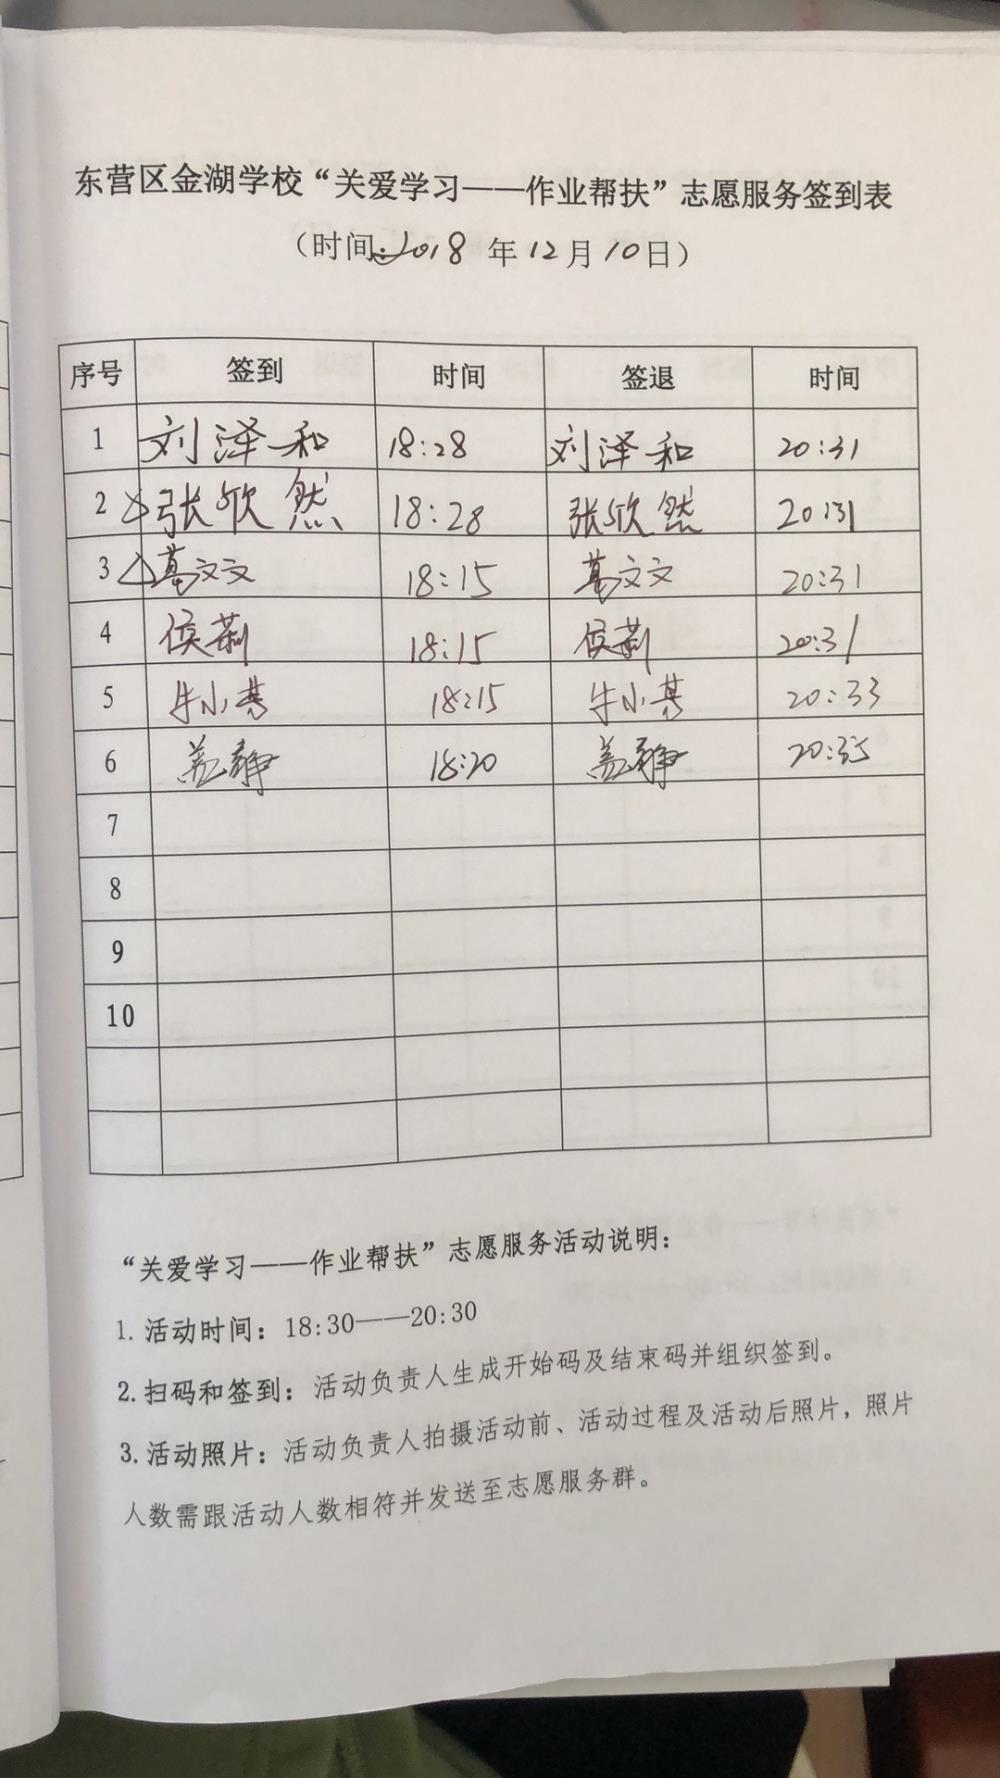 东营区金湖学校“关爱学习——作业帮扶”志愿服务签到表
（时间：2018 年 12 月 10 日）
序号 签到 时间 签退 时间
1 刘泽和 18:28 刘泽和 20:31
2 张欣然 18:28 张欣然 20:31
3 葛文文 18:15 葛文文 20:31
4 侯莉 18:15 侯莉 20:31
5 牛小 18:15 牛小 20:33
6 盖静 18:20 盖静 20:35
7
8
9
10
“关爱学习——作业帮扶”志愿服务活动说明：
1. 活动时间：18:30——20:30
2. 扫码和签到：活动负责人生成开始码及结束码并组织签到。
3. 活动照片：活动负责人拍摄活动前、活动过程及活动后照片，照片
人数需跟活动人数相符并发送至志愿服务群。